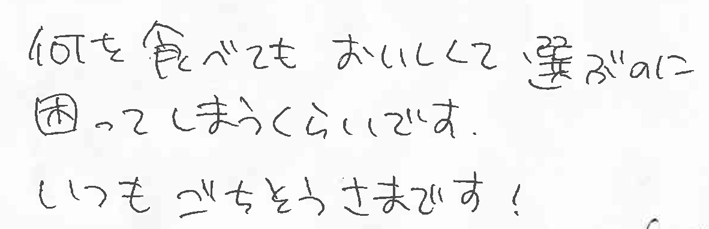 何を食べてもおいしくて選ぶのに
困ってしまうくらいです.
いつもごちそうさまです!